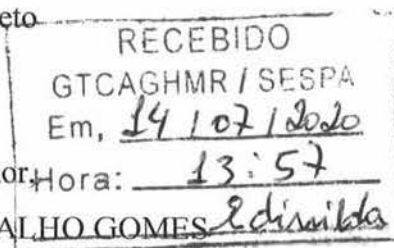 eto
RECEBIDO
GTCAGHMR / SESPA
Em, 14 / 07 / 2020
or, Hora: 13:57
ALHO GOMES